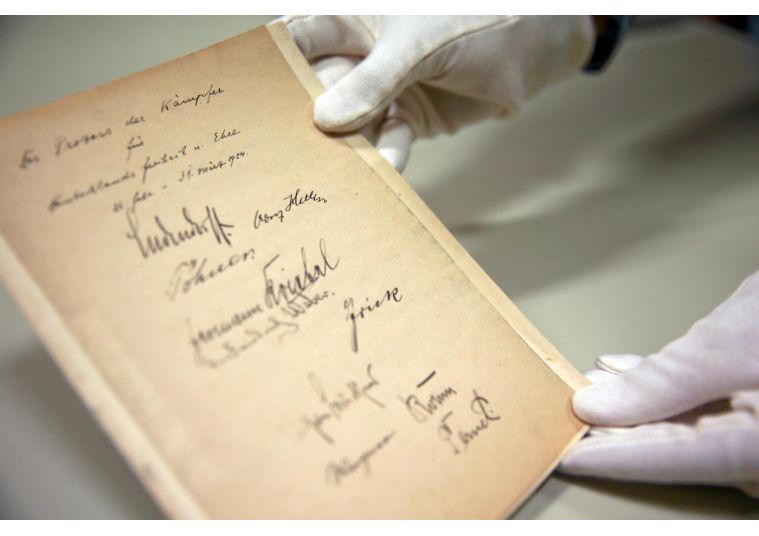 Der Prozess der Kämpfer
für
Deutschlands Freiheit u. Ehre
26. Febr. – 31. März 1924.
Ludendorff. Adolf Hitler
Pöhner
Hermann Kriebel
Weber.
Frick
Brückner
Röhm
Wagner
Pernet.